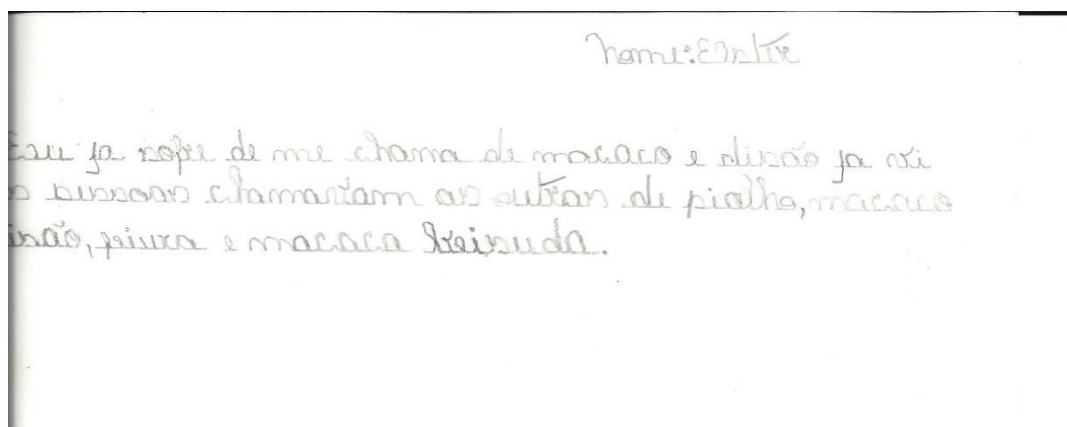 Nome:
Esu ja sofre de me chama de macaco e disão ja vi
as pessoas chamariam as outras de piolho, macaco
isão, piura e macaca Beisuda.